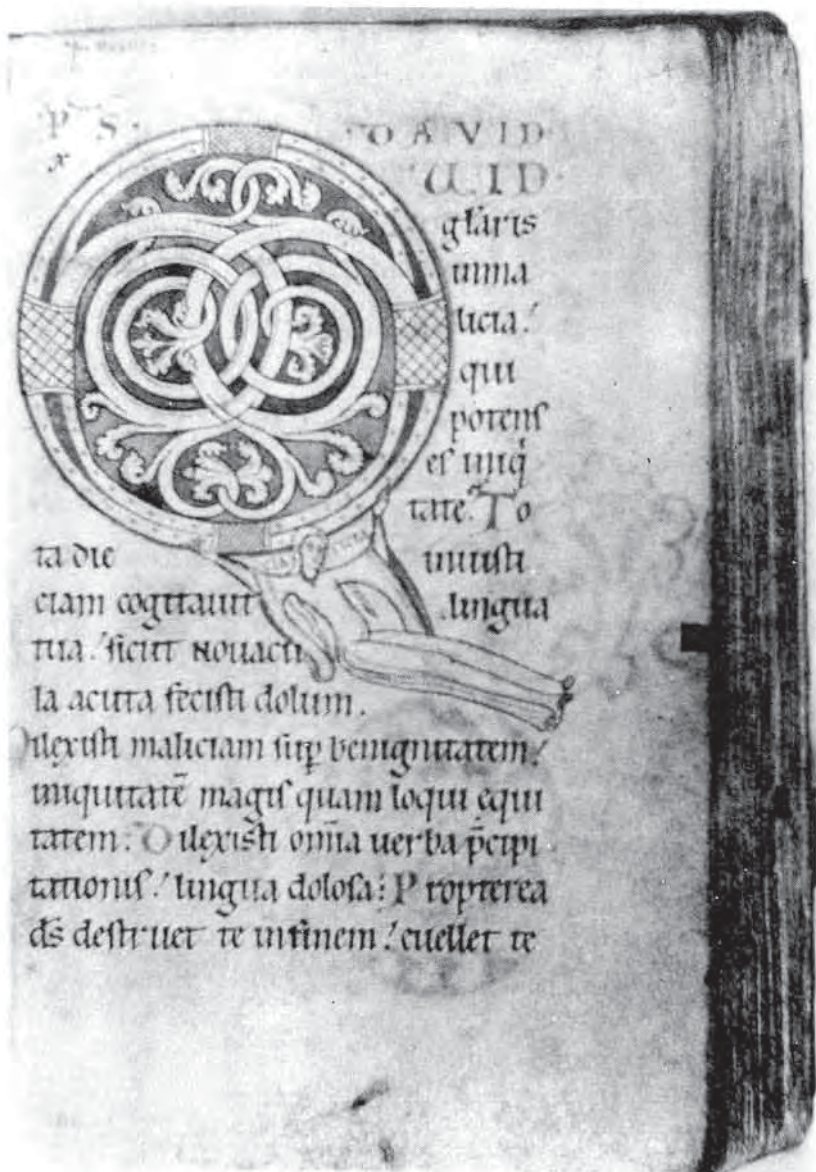 P S DAVID
UID
gl̄aris
in ma
licia.
qui
potens
es iniq̇
tate. To
ta die iniusti
ciam cogitauit lingua
tua. sicut nouacu
la acuta fecisti dolum.
Dilexisti maliciam sup̄ benignitatem.
iniquitatē magis quam loqui equi
tatem. Dilexisti om̄ia uerba p̄cipi
tationis. lingua dolosa. Propterea
ds̄ destruet te in finem. euellet te